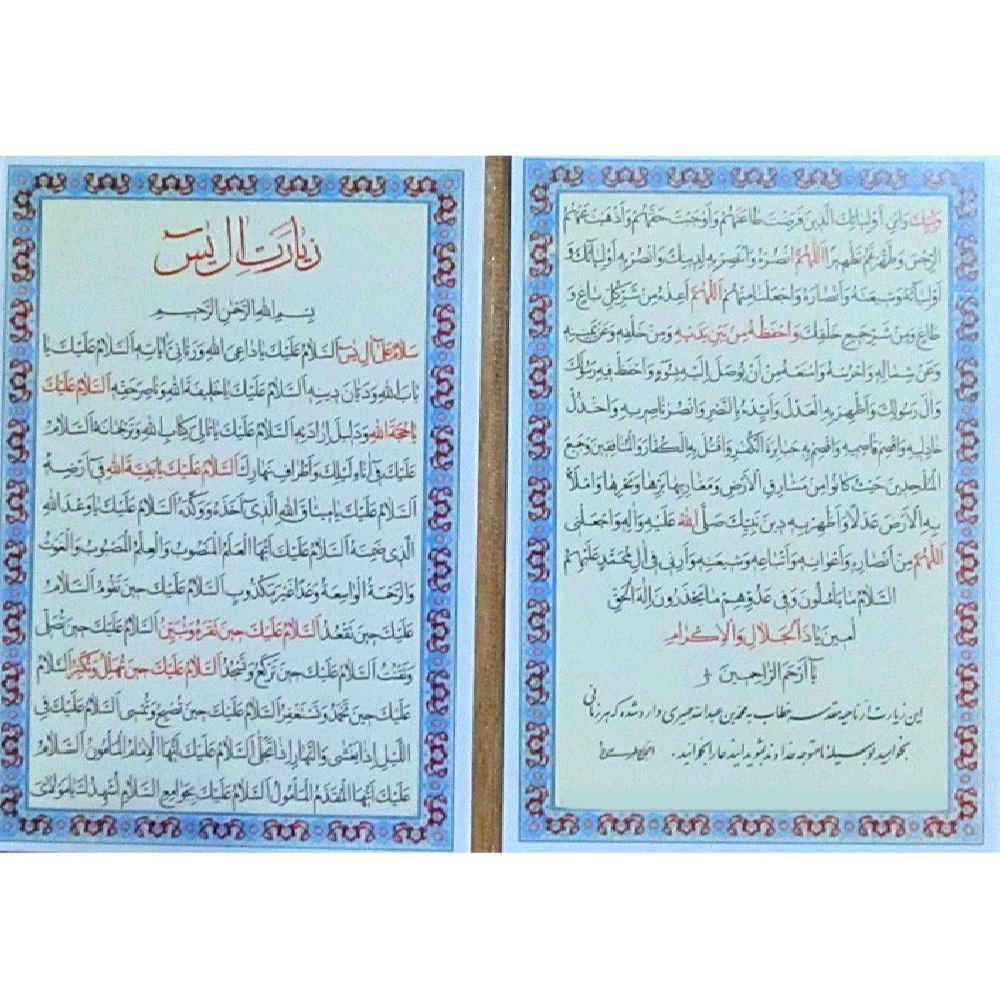 زیارت آل یس
بِسْمِ اللهِ الرَّحْمنِ الرَّحیمِ
سَلامٌ عَلى آلِ یس اَلسَّلامُ عَلَیْکَ یا داعِىَ اللهِ وَرَبّانِىَّ آیاتِهِ اَلسَّلامُ عَلَیْکَ یا
بابَ اللهِ وَدَیّانَ دینِهِ اَلسَّلامُ عَلَیْکَ یا خَلیفَةَ اللهِ وَناصِرَ حَقِّهِ اَلسَّلامُ عَلَیْکَ
یا حُجَّةَ اللهِ وَدَلیلَ اِرادَتِهِ اَلسَّلامُ عَلَیْکَ یا تالِىَ کِتابِ اللهِ وَتَرْجُمانَهُ اَلسَّلامُ
عَلَیْکَ فى آناءِ لَیْلِکَ وَاَطْرافِ نَهارِکَ اَلسَّلامُ عَلَیْکَ یا بَقِیَّةَ اللهِ فى اَرْضِهِ
اَلسَّلامُ عَلَیْکَ یا میثاقَ اللهِ الَّذى اَخَذَهُ وَوَکَّدَهُ اَلسَّلامُ عَلَیْکَ یا وَعْدَ اللهِ
الَّذى ضَمِنَهُ اَلسَّلامُ عَلَیْکَ اَیُّهَا الْعَلَمُ الْمَنْصُوبُ وَالْعِلْمُ الْمَصْبُوبُ وَالْغَوْثُ
وَالرَّحْمَةُ الْواسِعَةُ وَعْداً غَیْرَ مَکْذُوبٍ اَلسَّلامُ عَلَیْکَ حینَ تَقُومُ اَلسَّلامُ
عَلَیْکَ حینَ تَقْعُدُ اَلسَّلامُ عَلَیْکَ حینَ تَقْرَءُ وَتُبَیِّنُ اَلسَّلامُ عَلَیْکَ حینَ تُصَلّى
وَتَقْنُتُ اَلسَّلامُ عَلَیْکَ حینَ تَرْکَعُ وَتَسْجُدُ اَلسَّلامُ عَلَیْکَ حینَ تُهَلِّلُ وَتُکَبِّرُ اَلسَّلامُ
عَلَیْکَ حینَ تَحْمَدُ وَتَسْتَغْفِرُ اَلسَّلامُ عَلَیْکَ حینَ تُصْبِحُ وَتُمْسى اَلسَّلامُ عَلَیْکَ فِى
اللَّیْلِ اِذا یَغْشى وَالنَّهارِ اِذا تَجَلّى اَلسَّلامُ عَلَیْکَ اَیُّهَا الْاِمامُ الْمَاْمُونُ اَلسَّلامُ
عَلَیْکَ اَیُّهَا الْمُقَدَّمُ الْمَاْمُولُ اَلسَّلامُ عَلَیْکَ بِجَوامِعِ السَّلامِ اُشْهِدُکَ یا مَوْلاىَ
وَلِیِّکَ وَابْنِ اَوْلِیائِکَ الَّذینَ فَرَضْتَ طاعَتَهُمْ وَاَوْجَبْتَ حَقَّهُمْ وَاَذْهَبْتَ عَنْهُمُ
الرِّجْسَ وَطَهَّرْتَهُمْ تَطْهیراً اَللّهُمَّ انْصُرْهُ وَانْتَصِرْ بِهِ لِدینِکَ وَانْصُرْ بِهِ اَوْلِیائَکَ وَ
اَوْلِیائَهُ وَشیعَتَهُ وَاَنْصارَهُ وَاجْعَلْنا مِنْهُمْ اَللّهُمَّ اَعِذْهُ مِنْ شَرِّ کُلِّ باغٍ وَ
طاغٍ وَمِنْ شَرِّ جَمیعِ خَلْقِکَ وَاحْفَظْهُ مِنْ بَیْنِ یَدَیْهِ وَمِنْ خَلْفِهِ وَعَنْ یَمینِهِ
وَعَنْ شِمالِهِ وَاحْرُسْهُ وَامْنَعْهُ مِنْ اَنْ یُوصَلَ اِلَیْهِ بِسُوءٍ وَاحْفَظْ فیهِ رَسُولَکَ
وَآلَ رَسُولِکَ وَاَظْهِرْ بِهِ الْعَدْلَ وَاَیِّدْهُ بِالنَّصْرِ وَانْصُرْ ناصِریهِ وَاخْذُلْ
خاذِلیهِ وَاقْصِمْ قاصِمیهِ وَاقْصِمْ بِهِ جَبابِرَةَ الْکُفْرِ وَاقْتُلْ بِهِ الْکُفّارَ وَالْمُنافِقینَ وَجَمیعَ
الْمُلْحِدینَ حَیْثُ کانُوا مِنْ مَشارِقِ الْاَرْضِ وَمَغارِبِها بَرِّها وَبَحْرِها وَامْلَاْ
بِهِ الْاَرْضَ عَدْلاً وَاَظْهِرْ بِهِ دینَ نَبِیِّکَ صَلَّى اللهُ عَلَیْهِ وَآلِهِ وَاجْعَلْنى
اَللّهُمَّ مِنْ اَنْصارِهِ وَاَعْوانِهِ وَاَتْباعِهِ وَشیعَتِهِ وَاَرِنى فى آلِ مُحَمَّدٍ عَلَیْهِمُ
السَّلامُ ما یَاْمُلُونَ وَفى عَدُوِّهِمْ ما یَحْذَرُونَ اِلهَ الْحَقِّ
آمینَ یا ذَا الْجَلالِ وَالْاِکْرامِ
یا اَرْحَمَ الرّاحِمینَ
این زیارت از ناحیه مقدسه خطاب به محمد بن عبدالله حمیری وارد شده که هر زمانی
بخواهید بوسیله ما متوجه خداوند بشوید اینها را بخوانید.